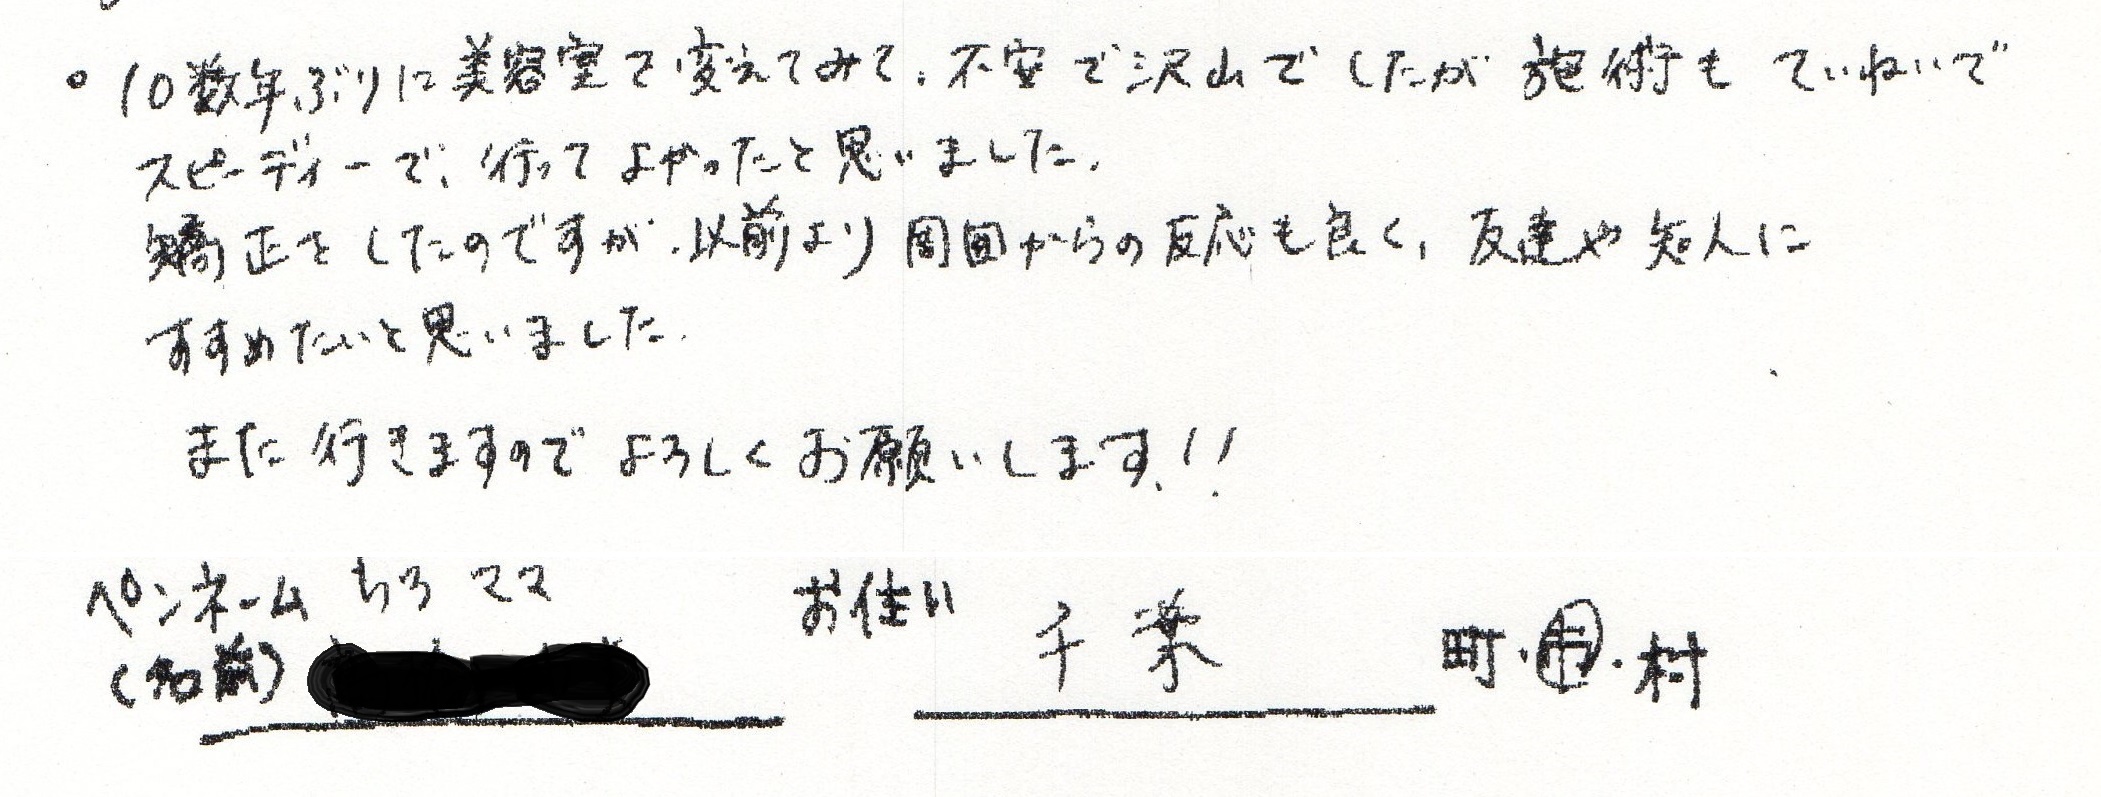 。10数年ぶりに美容室で変えてみて、不安で沢山でしたが施術もていねいで
スピーディーで、行ってよかったと思いました。
矯正をしたのですが、以前より周囲からの反応も良く、友達や知人に
すすめたいと思いました。
また行きますのでよろしくお願いします!!
ペンネーム ちろママ お住い 千葉 町・市・村
(名前)